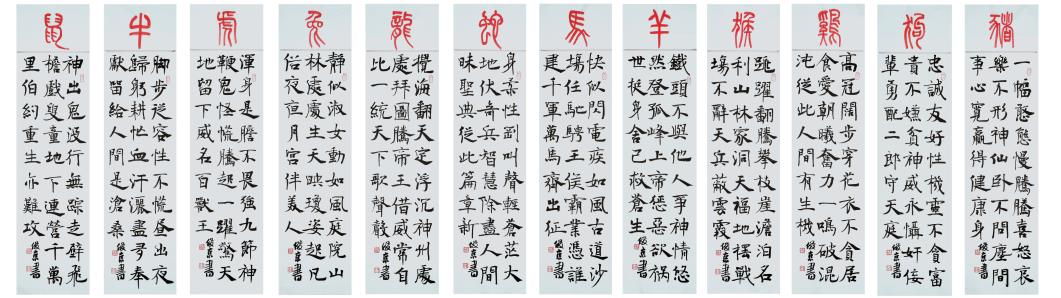 鼠
神出鬼没行無踪走壁飛
檐戲叟童地下連營千萬
里伯約重生亦難攻
牛
脚步從容性不慌昼出夜
歸躬耕忙血汗灑盡尋奉
獻留給人間是滄桑
虎
渾身是膽不畏強九節神
鞭鬼怪慌騰起一躍驚天
地留下威名百獸王
兔
静似淑女動如風庭院山
林處處生天眏瓊姿起凡
俗夜夜月宫伴美人
龍
攪海翻天定浮沉神州處
處拜圖騰帝王借威常自
比一統天下歌聲
蛇
身柔性剛叫聲輕蒼茫大
地伏奇兵智慧除盡人間
昧聖典從此篇章新
馬
快似閃電疾如風古道沙
場任馳騁王侯霸業憑誰
建千軍萬馬齊出征
羊
鐵頭不與他人争神情悠
然登孤峰上帝懲惡欲禍
世挺身舍己救蒼生
猴
跳躍翻騰攀枝崖澹泊名
利山林家洞天福地擺戰
場不辭天兵蔽雲霞
鷄
高冠闊步穿花衣不貪居
食愛朝曦奮力一鳴破混
沌從此人間有生機
狗
忠誠友好性機靈不貪富
貴不嫌貧神威永懾奸佞
輩勇配二郎守天庭
豬
一幅憨態慢騰騰喜怒哀
樂不形神仙卧不聞塵間
事心寬贏得健康身